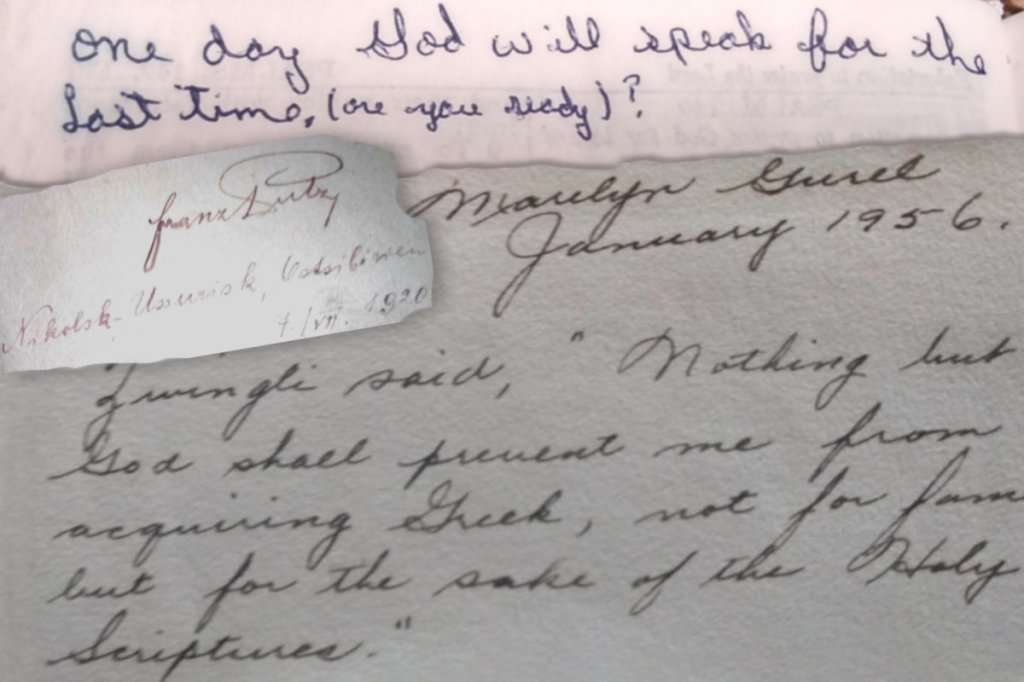 one day God will speak for the
Last time. (are you ready)?
Franz
Nikolsk-Ussurisk, Ostsibirien
7./VII. 1920
Marilyn
January 1956.
Zwingli said, "Nothing but
God shall prevent me from
acquiring Greek, not for fam
but for the sake of the Holy
Scriptures."